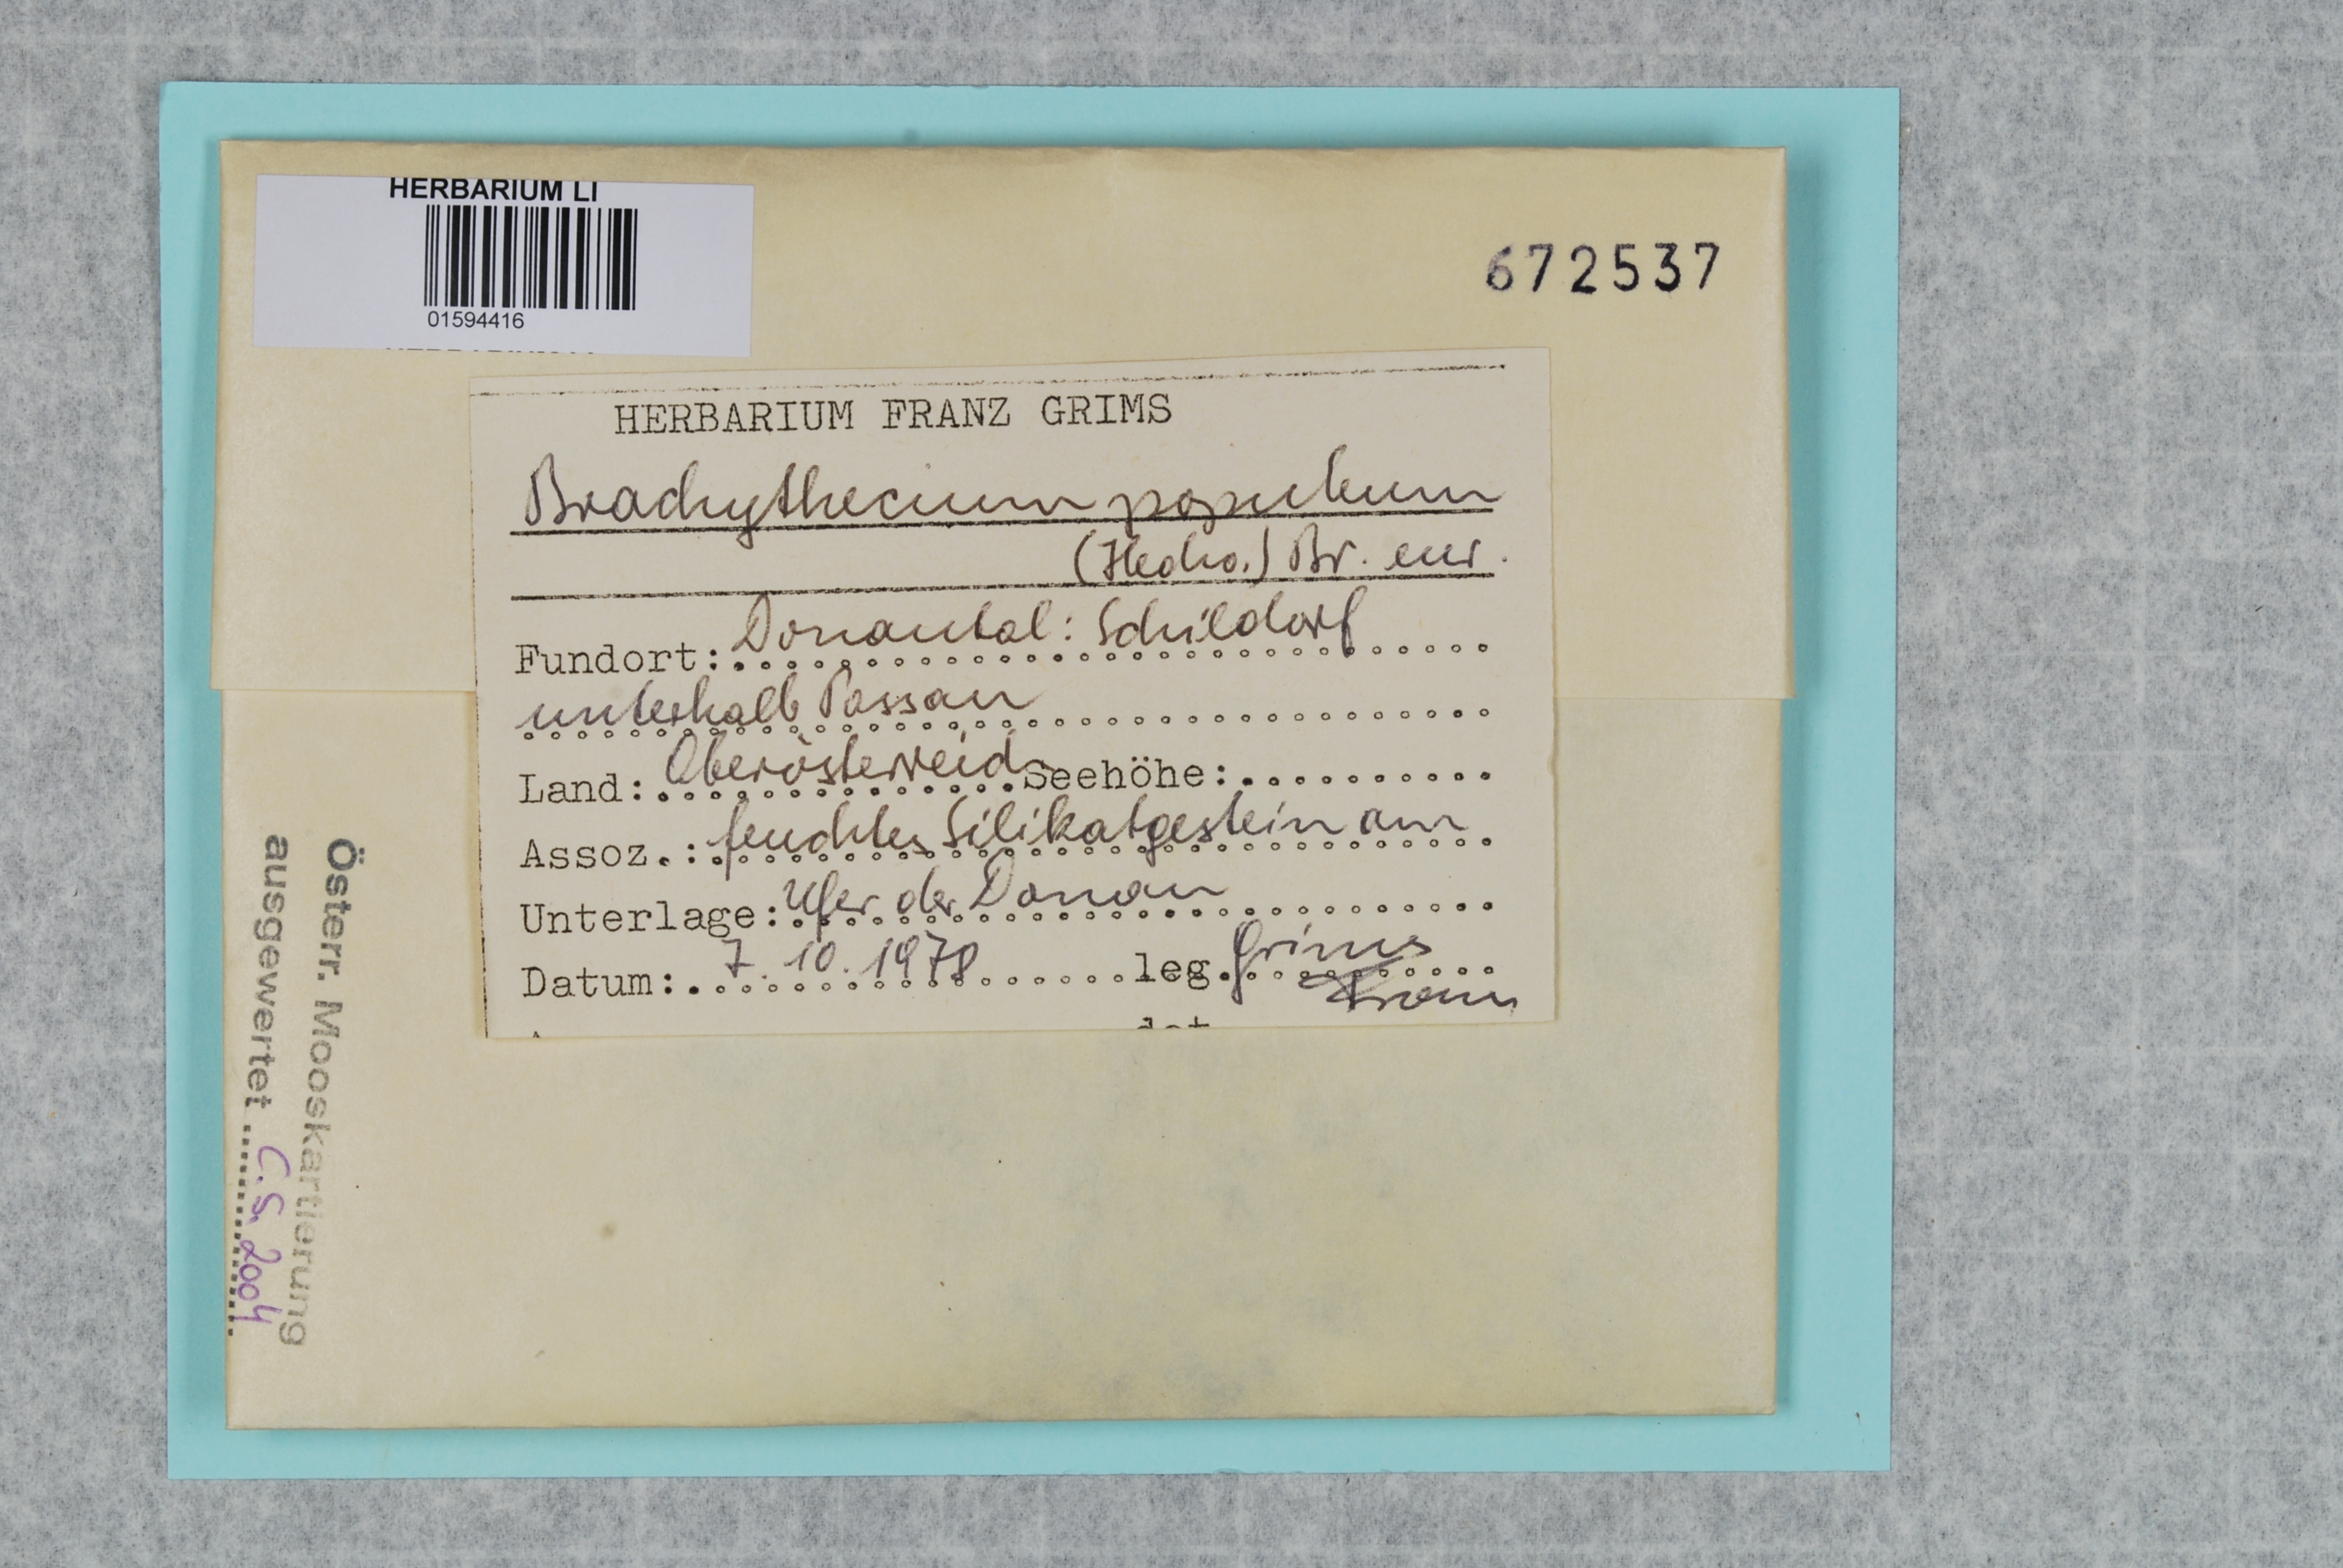 HERBARIUM LI
01594416
672537
HERBARIUM FRANZ GRIMS
Brachythecium populeum
(Hedw.) Br. eur.
Fundort: Donautal: Schildorf
unterhalb Passau
Land: Oberösterreich Seehöhe:
Assoz.: feuchtes Silikatgestein am
Unterlage: Ufer der Donau
Datum: 7. 10. 1978 leg. Grims
Franz
Österr. Mooskartierung
ausgewertet C.S. 2004